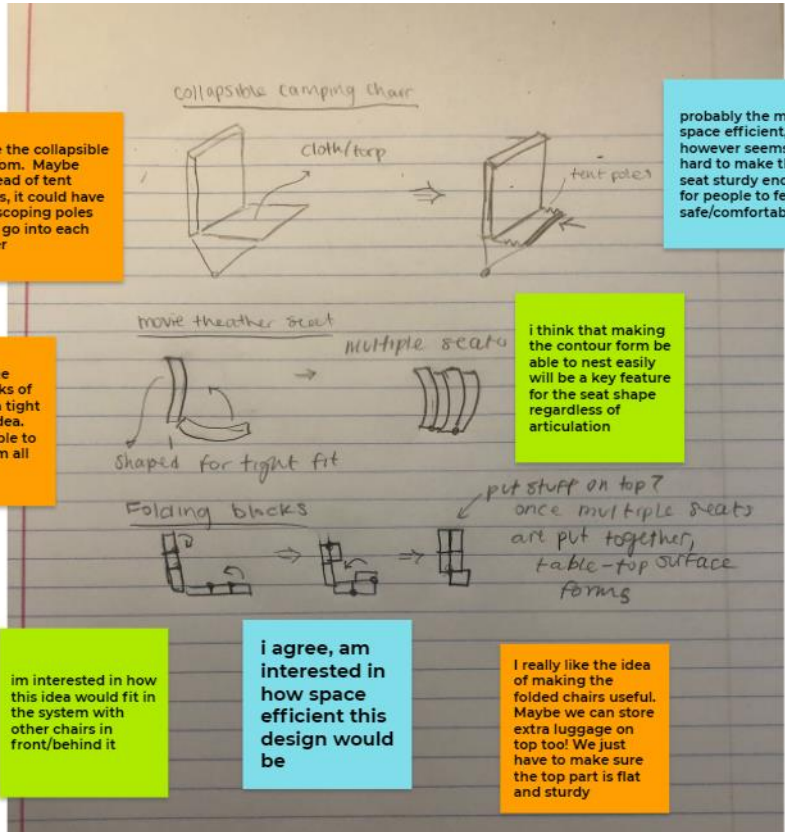 collapsible camping chair
cloth/tarp
tent poles
e the collapsible
om. Maybe
ead of tent
s, it could have
scoping poles
go into each
er
probably the m
space efficient,
however seems
hard to make th
seat sturdy eno
for people to fe
safe/comfortab
movie theather seat
multiple seats
shaped for tight fit
i think that making
the contour form be
able to nest easily
will be a key feature
for the seat shape
regardless of
articulation
e
ks of
tight
dea.
ble to
m all
Folding blocks
put stuff on top?
once multiple seats
are put together,
table-top surface
forms
im interested in how
this idea would fit in
the system with
other chairs in
front/behind it
i agree, am
interested in
how space
efficient this
design would
be
I really like the idea
of making the
folded chairs useful.
Maybe we can store
extra luggage on
top too! We just
have to make sure
the top part is flat
and sturdy